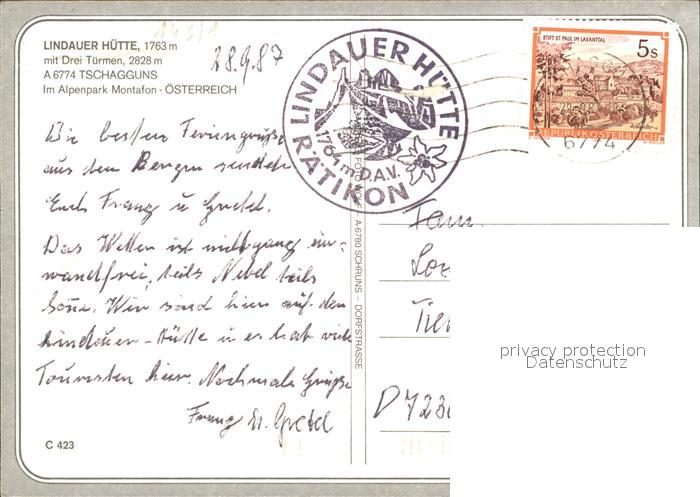 143/1
LINDAUER HÜTTE, 1763 m
mit Drei Türmen, 2828 m
A 6774 TSCHAGGUNS
Im Alpenpark Montafon - ÖSTERREICH
28.9.87
LINDAUER HÜTTE
1764 m D.A.V.
RÄTIKON
STIFT ST. PAUL IM LAVANTTAL
5s
REPUBLIK ÖSTERREICH
6774
Die besten Feriengrüße
aus den Bergen senden
Euch Franz u Gretel.
Das Wetter ist nicht ganz ein-
wandfrei, teils Nebel teils
Sonne. Wir sind hier auf der
Lindauer-Hütte u es hat viele
Touristen hier. Nochmals Grüße
Franz u. Gretel
A-6780 SCHRUNS – DORFSTRASSE
Fam.
D 723
privacy protection
Datenschutz
C 423